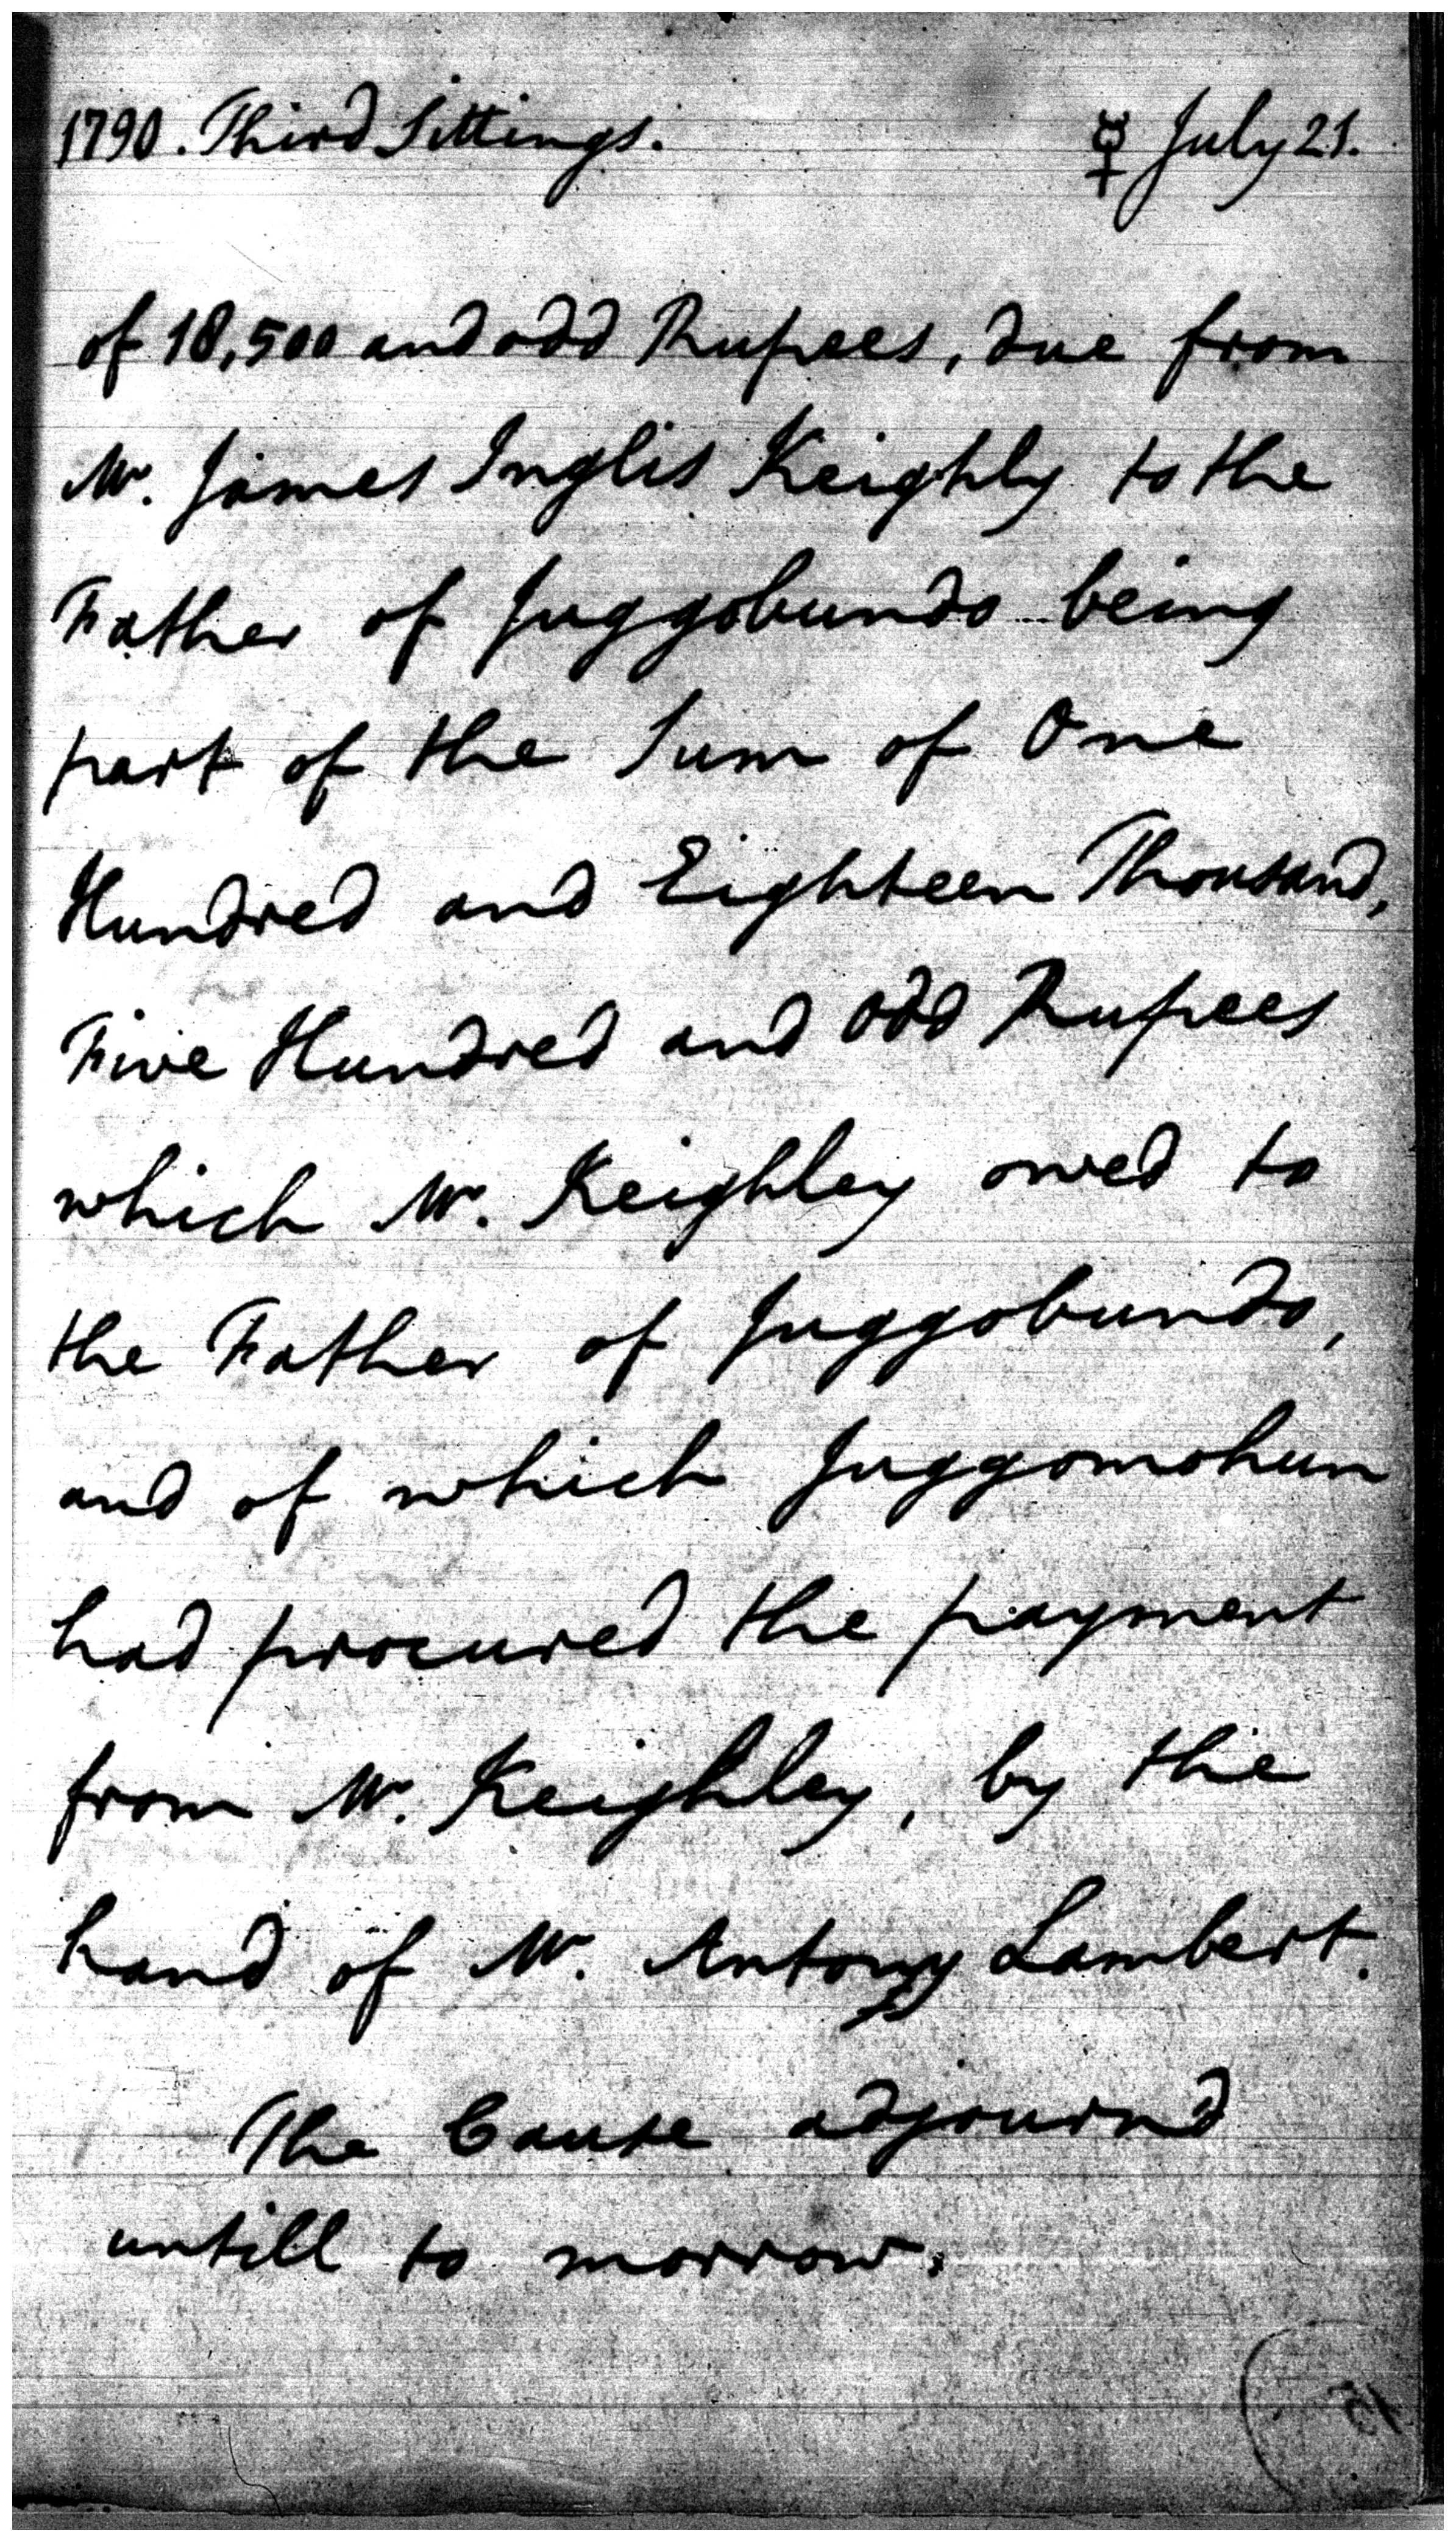 1790. Third Sittings. ☿ July 21.
of 18,500 and odd Rupees, due from
Mr. James Inglis Keighly to the
Father of Juggobundo being
part of the Sum of One
Hundred and Eighteen Thousand,
Five Hundred and Odd Rupees
which Mr. Keighley owed to
the Father of Juggobundo,
and of which Juggomohun
had procured the payment
from Mr. Keighley, by the
hand of Mr. Antony Lambert.
The Cause adjournd
untill to morrow.